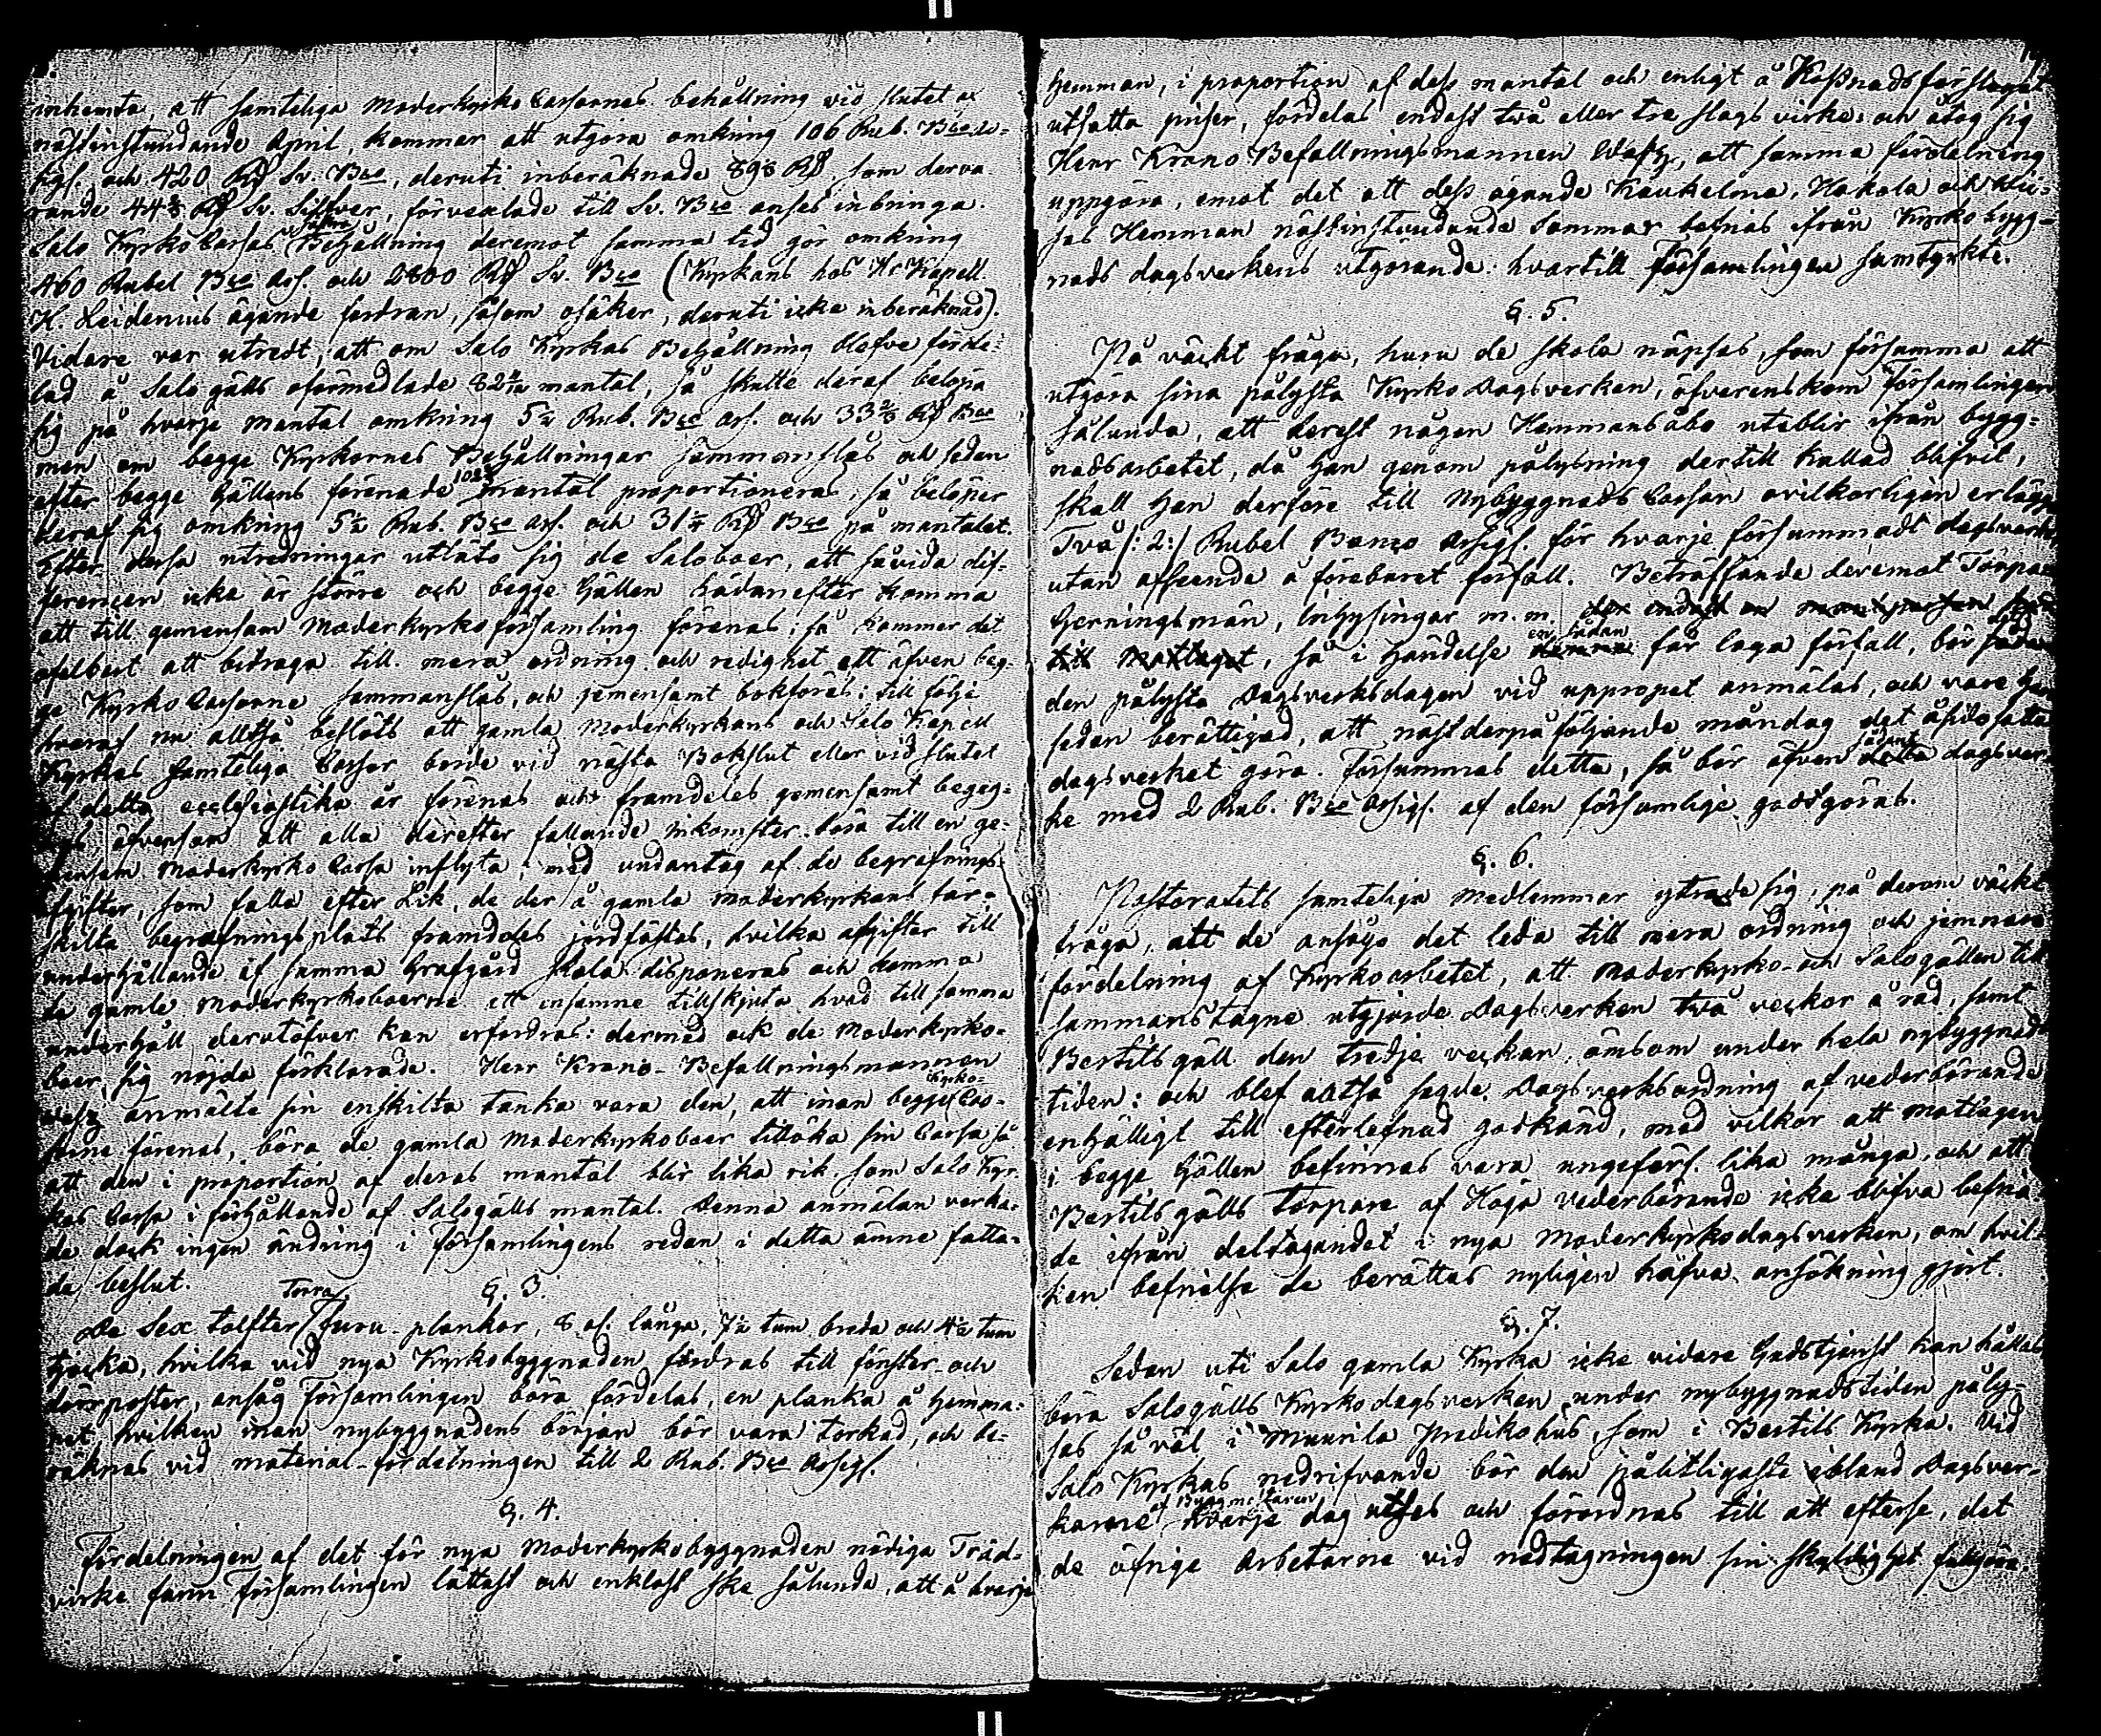 inhemta, att samteliga Moderkyrko Cassornes behållning vid slutet af
nästinstundande April, kommer att utgöra omkring 106 Rub. Bco As-
sigs. och 420 Rd Sv. Bco, deruti inberäknade 898 Rd som derva
rande 44 Rd Sv. Silfver, förvexlade till Sv. Bco anses inbringa.
Salo Kyrko Cassas Behållning deremot samma tid gör omkring
460 Rubel Bco ass. och 2800 Rd Sv. Bco (Kyrkans hos Hr Kapell.
H. Leidenius ägande fordran, såsom osäker, deruti icke inberäknad).
Vidare var utredt, att om Salo Kyrkas Behållning blefve förde-
lad å Salo gälls oförmedlade 82 mantal, så skulle deraf belöpa
sig på hvarje Mantal omkring 5½ Rub. Bco ass. och 33⅔ Rd Bco
men om begge Kyrkornes Behållningar sammanslås och sedan
efter begge Gällens förenade mantal proportioneras, så belöper
deraf sig omkring 5½ Rub. Bco ass. och 31¼ Rd Bco på mantalet.
Efter dessa utredningar utläto sig de Saloboer, att såvida dif-
ferencen icke är större och begge Gällen hädanefter komma
att till gemensam Moderkyrkoförsamling förenas; så kommer det
ofelbart att bidraga till mera ordning och redighet att äfven beg-
ge Kyrko Cassorne sammanslås, och gemensamt bokföras; till följe
hvaraf nu alltså beslöts att gamla Moderkyrkans och Salo Kapell
Kyrkas samteliga Cassor borde vid nästa Bokslut eller vid slutet
af detta ecclesiastika år förenas och framdeles gemensamt begag-
nas äfvensom att alla derefter fallande inkomster böra till en ge-
mensam Moderkyrko Cassa inflyta; med undantag af de begrafnings-
afgifter, som falla efter Lik, de der å gamla moderkyrkans sär-
skilta begrafningsplats framdeles jordfästas, hvilka afgifter till
underhållande af samma Grafgård skola disponeras och komma
de gamle Moderkyrkoboerne ett ensamne tillskjuta hvad till samma
underhåll derutöfver kan erfordras: dermed ock de Moderkyrko-
boer sig nöjda förklarade. Herr Krono-Befallningsmannen
anmälte sin enskilta tanka vara den, att innan begge Kyrko- Cas-
sorne förenas, böra de gamla Moderkyrkoboer tillöka sin Cassa så
att den i proportion af deras mantal blir lika rik som Salo Kyr-
kas Cassa i förhållande af Salogälls mantal. Denna anmälan verka-
de dock ingen ändring i Församlingens redan i detta ämne fatta-
de beslut.
§. 3.
De Sex tolfter Torra furu-plankor, 8 al. långa, 7½ tum breda och 4½ tum
tjocka, hvilka vid nya Kyrkobyggnaden fordras till fönster- och
dörrposter, ansåg Församlingen böra fördelas, en planka å hemma-
net, hvilken innan nybyggnadens början bör vara torkad, och be-
räknas vid material-fördelningen till 2 Rub. Bco Assigs.
§. 4.
Fördelningen af det för nya Moderkyrkobyggnaden nödiga Träd-
virke fann Församlingen lättast och enklast ske sålunda, att å hvarje
Hemman, i proportion af dess mantal och enligt å Kostnadsförslaget
utsatta priser, fördelas endast två eller tre slags virke: och åtog sig
Herr Krono Befallningsmannen att samma fördelning
uppgöra, emot det att dess ägande Kaukelma, Hakala och
sas Hemman nästinstundande sommar befrias ifrån Kyrkobygg-
nads dagsverkens utgörande: hvartill församlingen samtyckte.
§. 5.
På väckt fråga, huru de skola näpsas, som försumma att
utgöra sina pålysta Kyrko Dagsverken, öfverenskom Församlingen
sålunda, att derest någon Hemmansåbo uteblir ifrån bygg-
nadsarbetet, då han genom pålysning dertill kallad blifvit,
skall han derföre till Nybyggnads Cassan ovilkorligen erlägga
Två /: 2:/ Rubel Banco Assigs. för hvarje försummadt dagsverke,
utan afseende å förebaret förfall. Beträffande deremot Torpare
Gerningsmän, Inhysingar m. m.
så i händelse en sådan får laga förfall, bör
den pålysta Dagsverksdagen vid uppropet anmälas, och vare han
sedan berättigad, att nästderpåföljande måndag det åsidosatta
dagsverket göra. Försummas detta, så bör äfven sådant dagsver-
ke med 2 Rub. Bco Assigs. af den försumlige godtgöras.
§. 6.
Pastoratets samteliga medlemmar yttrade sig, på derom väckt
fråga, att de ansågo det leda till mera ordning och jemnare
fördelning af Kyrkoarbetet, att Moderkyrko- och Salogällen till
sammanstagne utgjorde Dagsverken två veckor å rad, samt
Bertilsgäll den tredje veckan, ömsom under hela nybyggnads
tiden: och blef altså sagde Dagsverksordning af vederbörande
enhälligt till efterlefnad godkänd, med vilkor att matlagen
i begge Gällen befinnas vara ungefärs. lika många, och att
Bertils gälls Torpare af Höga vederbörande icke blifva befria-
de ifrån deltagandet i nya Moderkyrkodagsverken, om hvil-
ken befrielse de berättas nyligen hafva ansökning gjort.
§. 7.
Sedan uti Salo gamla Kyrka icke vidare Gudstjenst kan hållas
böra Salogälls Kyrkodagsverken under nybyggnadstiden påly-
sas så väl i Muurila Predikohus, som i Bertils Kyrka. Vid
Salo Kyrkas nedrifvande bör den pålitligaste ibland Dagsver-
karne af Byggmästaren hvarje dag utses och förordnas till att efterse, det
de öfrige Arbetarne vid nedtagningen sin skyldighet fullgöra.